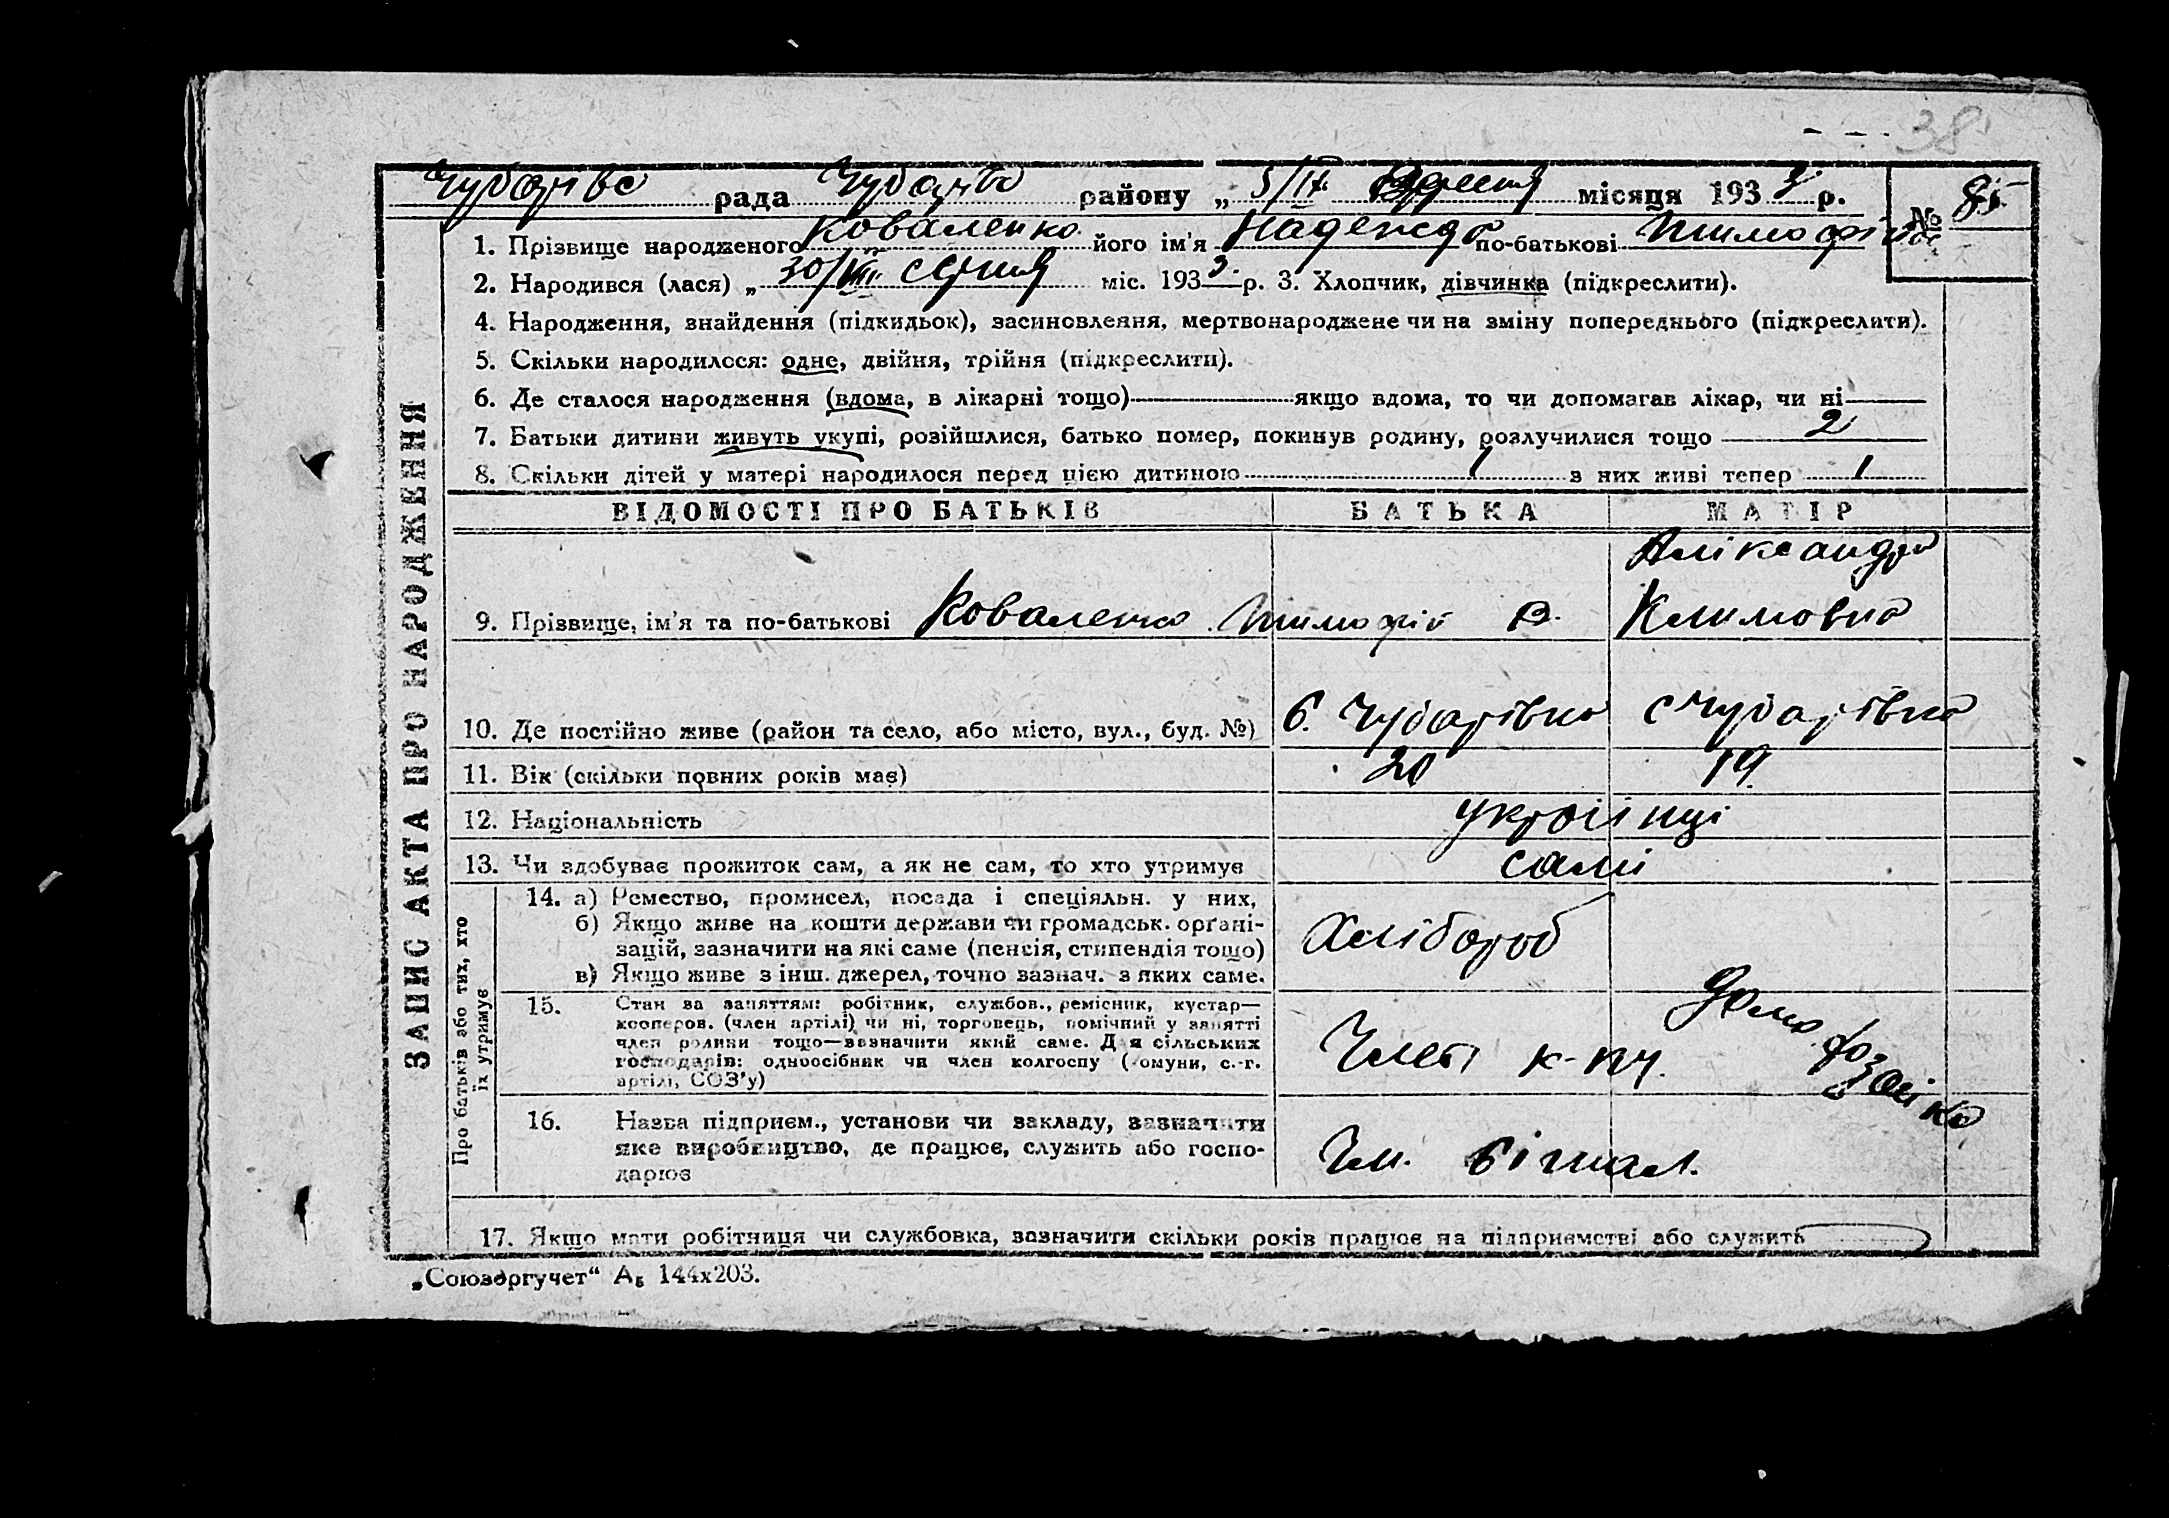 38
Чубарівс рада Чубарівс району „ 5/ІХ Вресня місяця 1933 р. № 85
1. Прізвище народженого Коваленко його ім'я Надежда по-батькові Тимофіївна
2. Народився (лася) „ 30/VIII серпня міс. 1933 р. 3. Хлопчик, дівчинка (підкреслити).
4. Народження, знайдення (підкидьок), засиновлення, мертвонароджене чи на зміну попереднього (підкреслити).
5. Скільки народилося: одне, двійня, трійня (підкреслити).
6. Де сталося народження (вдома, в лікарні тощо) якщо вдома, то чи допомагав лікар, чи ні
7. Батьки дитини живуть укупі, розійшлися, батько помер, покинув родину, розлучилися тощо 2
8. Скільки дітей у матері народилося перед цією дитиною 1 з них живі тепер 1
ЗАПИС АКТА ПРО НАРОДЖЕННЯ
ВІДОМОСТІ ПРО БАТЬКІВ БАТЬКА МАТІР
Аліксандра
9. Прізвище, ім'я та по-батькові Коваленко Тимофій В. Климовна
10. Де постійно живе (район та село, або місто, вул., буд. №) с. Чубарівка с Чубарівка
11. Вік (скільки повних років має) 20 19
12. Національність українці
13. Чи здобуває прожиток сам, а як не сам, то хто утримує самі
Про батьків або тих, хто
їх утримує
14. а) Ремество, промисел, посада і спеціяльн. у них,
б) Якщо живе на кошти держави чи громадськ. орґані-
зацій, зазначити на які саме (пенсія, стипендія тощо)
в) Якщо живе з інш. джерел, точно зазнач. з яких саме.
Хлібороб
15. Стан за заняттям: робітник, службов., ремісник, кустар—
кооперов. (член артілі) чи ні, торговець, помічний у занятті
член родини тощо—зазначити який саме. Для сільських
господарів: одноосібник чи член колгоспу (комуни, с.-г.
артілі, СОЗ'у)
Член к-пу.
Домо
хозяйка
16. Назва підприєм., установи чи закладу, зазначити
яке виробництво, де працює, служить або госпо-
дарює
17. Якщо мати робітниця чи службовка, зазначити скільки років працює на підприємстві або служить
„Союзоргучет“ А₅ 144х203.